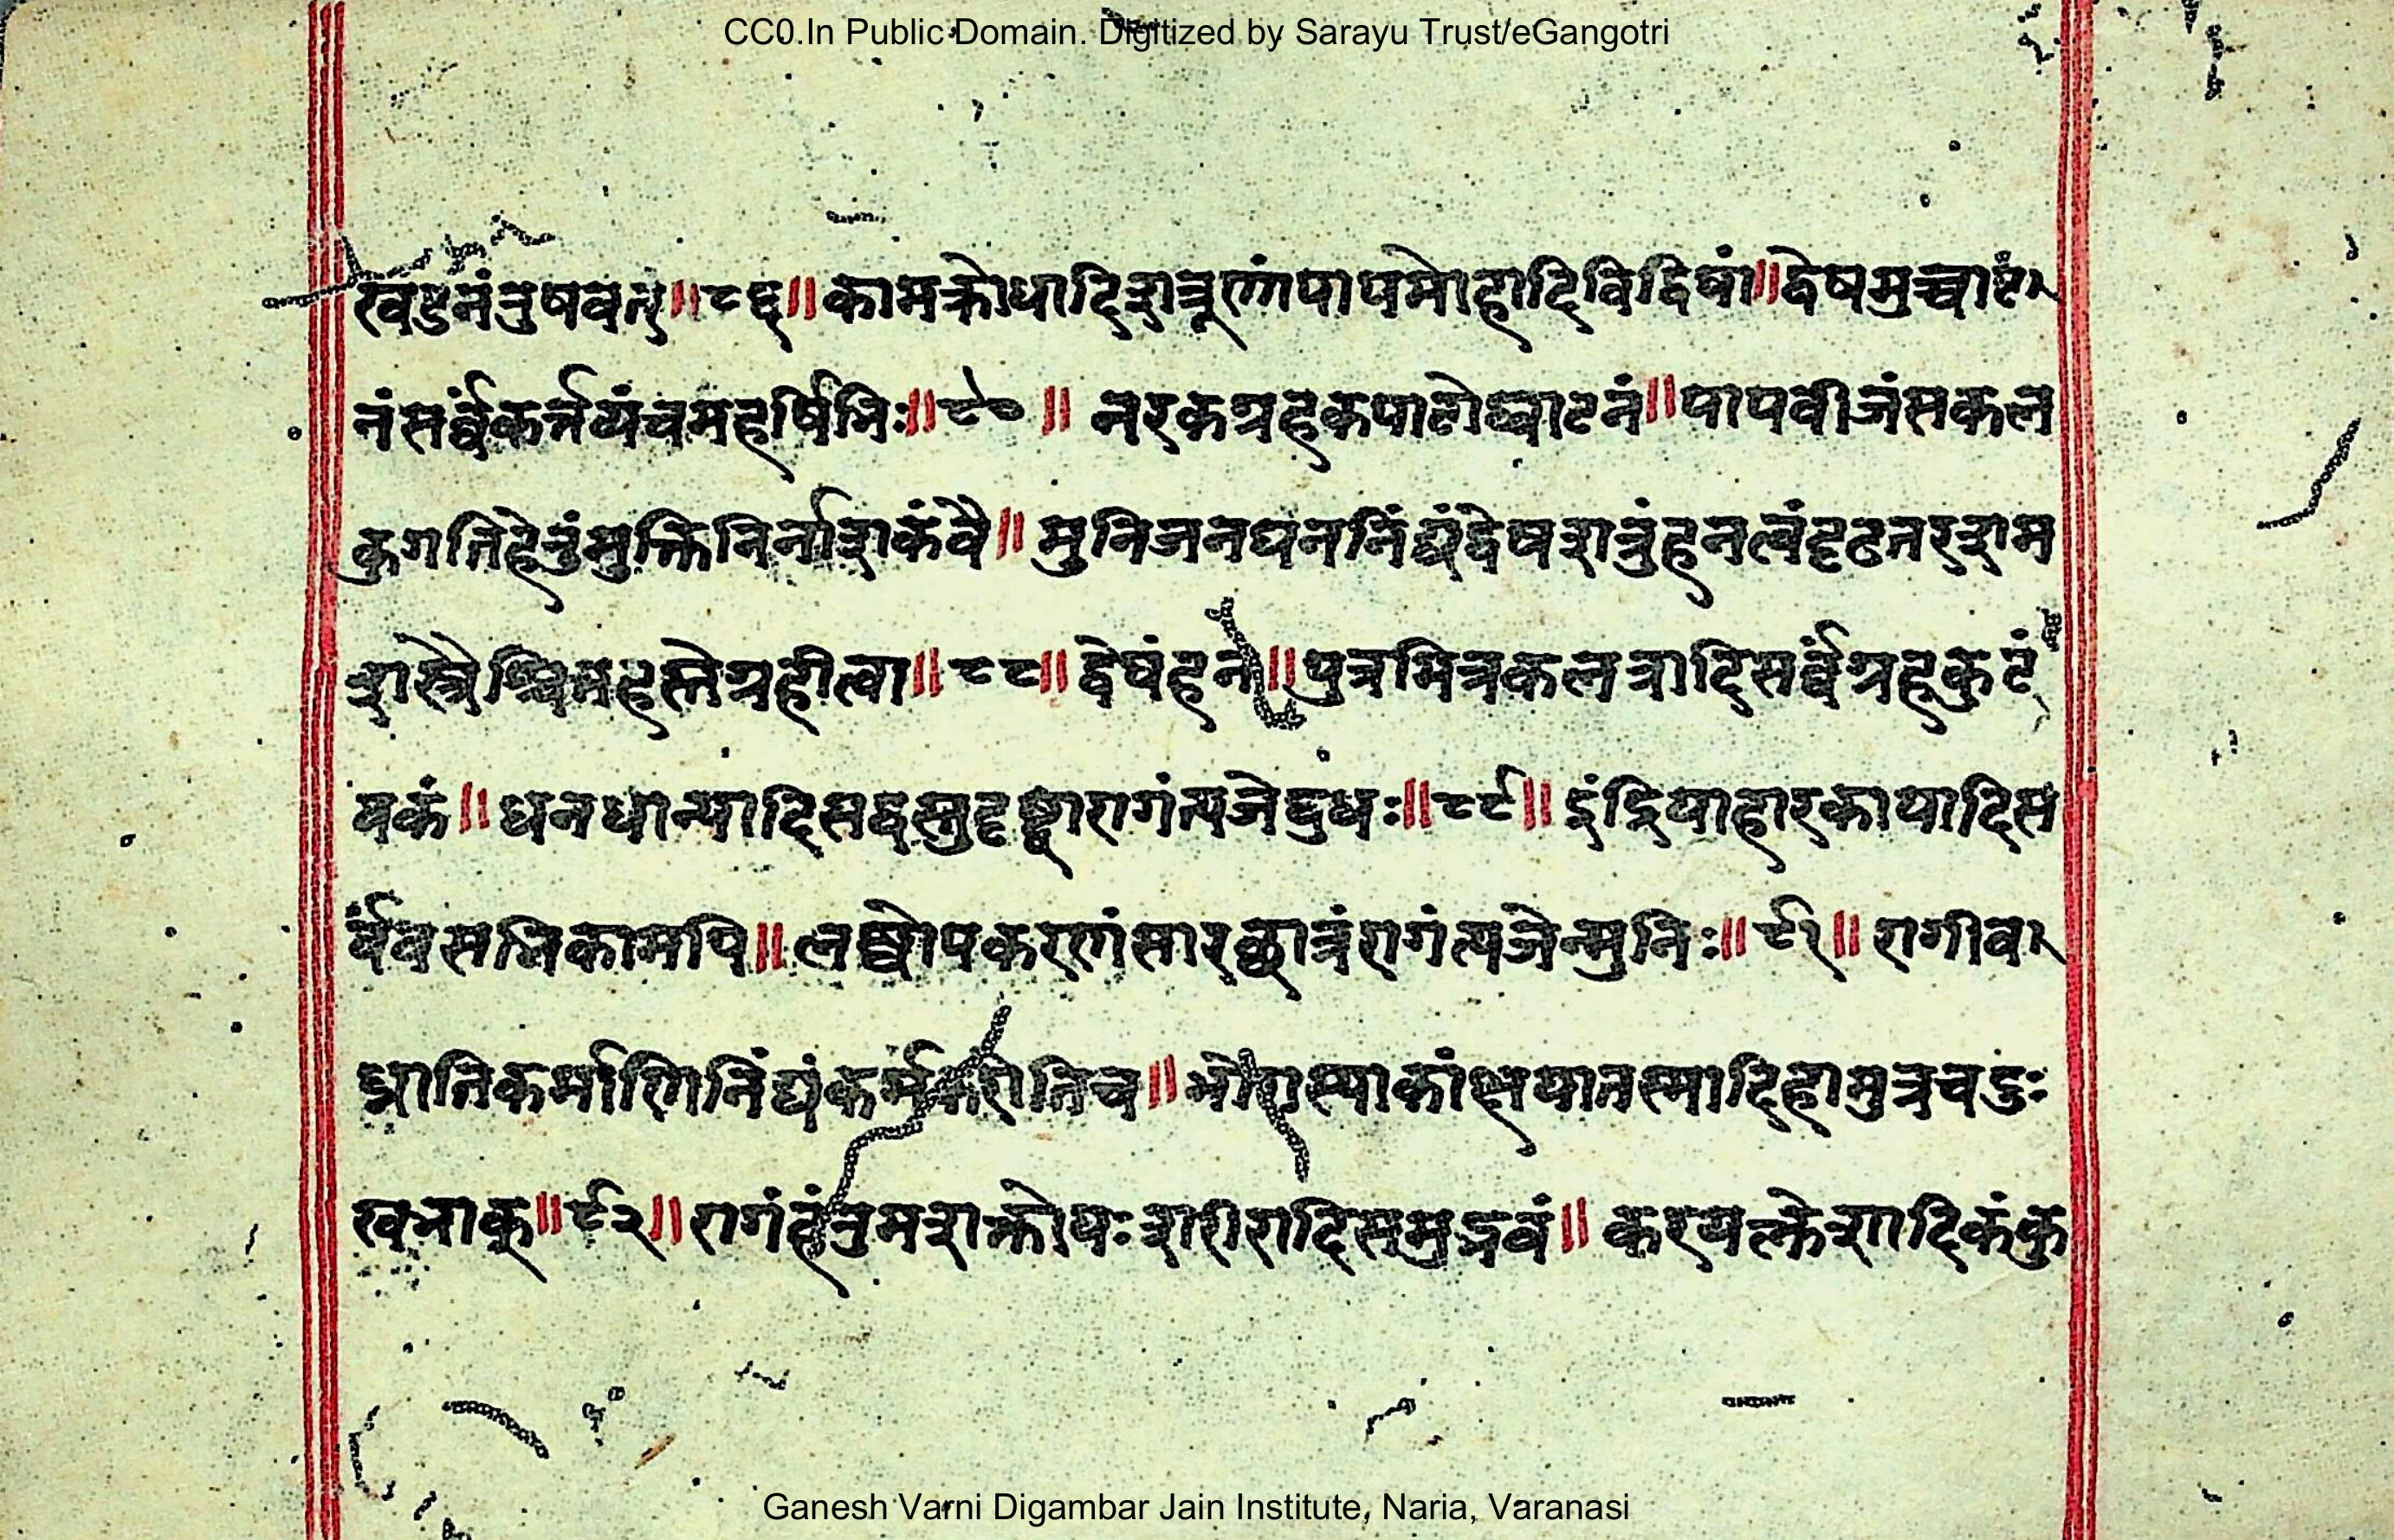 CC0.In Public Domain. Digitized by Sarayu Trust/eGangotri
खंडनंतुषवत्॥८६॥कामक्रोधादिशत्रूणांपापमोहादिविद्विषां॥द्वेषमुच्चाट
नंसर्व्वंकर्त्तव्यंचमहर्षिभिः॥८७॥ नरकग्रहकपाटोद्घाटनं॥पापबीजंसकल
कुगतिहेतुंमुक्तिनिर्नाशकंवै॥ मुनिजनघननिंद्यंद्वेषशत्रुंहनत्वंदृढतरशम
शस्त्रैश्चित्तहस्तेग्रहीत्वा॥८८॥ द्वेषंहन॥पुत्रमित्रकलत्रादिसर्व्वग्रहकुटं
वकं॥ धनधान्यादिसद्वस्तुदृष्ट्वारागंत्यजेद्बुधः॥८९॥ इंद्रियाहारकायादिस
र्वंवसतिकामपि॥ लब्ध्वोपकरणंसारछात्रंरागंत्यजेन्मुनिः॥९१॥ रागीव
ध्नातिकर्माणिनिंद्यंकर्मकरोतिच॥ भोगस्याकांक्षयातस्मादिहामुत्रचदुः
खभाक्॥९२॥ रागंहंतुमशक्तोयःशरीरादिसमुद्भवं॥ करयत्क्लेशादिकंकु
Ganesh Varni Digambar Jain Institute, Naria, Varanasi